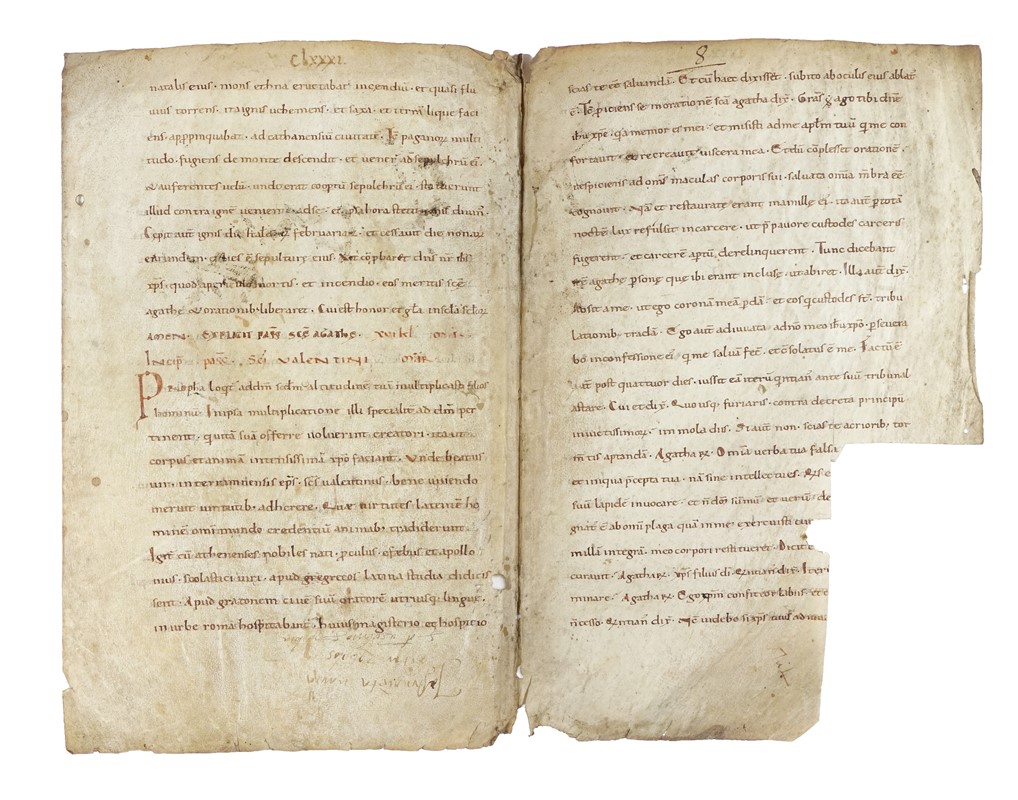 Clxxxi.
natalis eius · mons ethna eructabat incendiū · et quasi flu
uius torrens · ita ignis uehemens · et saxa · et terrā liquefaci
ens · app̄pinquabat · ad cathanensiū ciuitatē · Tc̄ paganoꝝ multi
tudo · fugiens de monte descendit · et uener̄ ad sepulchrū ei᷒ ·
& auferentes uelū · unde erat coop̄tū sepulchrū ei᷒ · statuerunt
illud contra ignē uenientē ad se · et ipsa hora stetit ignis diuisᵘˢ ·
Cepit autē ignis die kalendaꝝ februariaꝝ · et cessauit die nonaꝝ
earundem · dies ē sepulturę eius · Vt cōp̄baret dn̄s nr̄ ih̄s
xp̄s · quod a piculo mortis · et incendio · eos meritis scę̄
agathę & orationib; liberaret · Cui est honor et gl̄a · in scl̄a scl̄oꝝ
AMEN · EXPLICIT PASS̄ SCĒ AGATHE · XVI KL̄ MR̄
INCIP̄ PASS̄ · SC̄I VALENTINI MR̄IR̄
Propheta loq̄t̄ ad dm̄ · sedm̄ altitudinē tuā multiplicasti filios
hominū · In ipsa multiplicatione illi specialit̄ ad dm̄ per
tinent · qui tā suā offerre uoluerint creatori · ita ut
corpus et animā intensissimā xp̄o faciant · Unde beatus
uir interamnensis ep̄s · sc̄s ualentinus · bene uiuendo
meruit uirtutib; adherere · Quae uirtutes latinē ho
minē omi mundo credentiū animab; tradiderunt ·
Igit̄ cū athenenses nobiles nati · p̄culus · efębus et apollo
nius · scolastici uiri · apud gręgrecos latina studia didicis
sent · Apud gratonem ciuē suū oratorē utriusq; linguę ·
in urbe roma hospitabant̄ · huius magisterio et hospitio
8
scias te eē saluandā · Et cū haec dixisset · subito ab oculis eius ablat᷒
ē · Tc̄ p̄iciens se in orationē scā agatha dix̄ · Gr̄as g̊ ago tibi dn̄e
ih̄u xp̄e · q̄a memor es mei · et misisti ad me apl̄m tuū q̄ me con
fortauit · et recreauit uiscera mea · Et dū cōplesset orationē ·
respiciens ad om̄s maculas corporis sui · saluata omia m̄bra eē
cognouit · Nā et restauratę erant mamillę ei᷒ · ita aut̄ p̄ totā
noctē lux refulsit in carcere · ut p̄ pauore custodes carceris
fugerent · et carcerē aptū derelinquerent · Tunc dicebant
scę̄ agathe p̄sonę que ibi erant inclusę · ut abiret · Illa aut̄ dix̄ ·
Absit a me · ut ego coronā meā p̄dā · et eos q̄ custodes st̄ · tribu
lationib; tradā · Ego aut̄ adiuuata · a dn̄o meo ih̄u xp̄o · p̄seuera
bo in confessione ei᷒ q̄ me saluā fec̄ · et c̄solatus ē me · Factū ē
aut̄ post quattuor dies · iussit eā iterū q̄ntian᷒ ante suū tribunal
astare · Cui et dix̄ · Quousq; furiaris · contra decreta principū
inuictissimoꝝ · imola diis · Si aut̄ non · scias te acriorib; tor
m̄tis aptandā · Agatha R̄ · Omia uerba tua falsa
et iniqua p̄cepta tua · nā sine intellectu es · Quis e
suū lapidē inuocare · et n̄ dō sūmū · et uerū · de
gnat᷒ ē ab omi plaga quā in me exercuisti cur
millā integrā · meo corpori restitueret · Dic it e
curauit · Agatha R̄ · xp̄s filius di · Quntian᷒ dix̄ · Iteri
minare · Agatha R̄ · Ego xp̄m confiteor labiis · et c
n̄ cesso · Quntian᷒ dix̄ · Nc̄ uidebo si xp̄s tuus adiuua